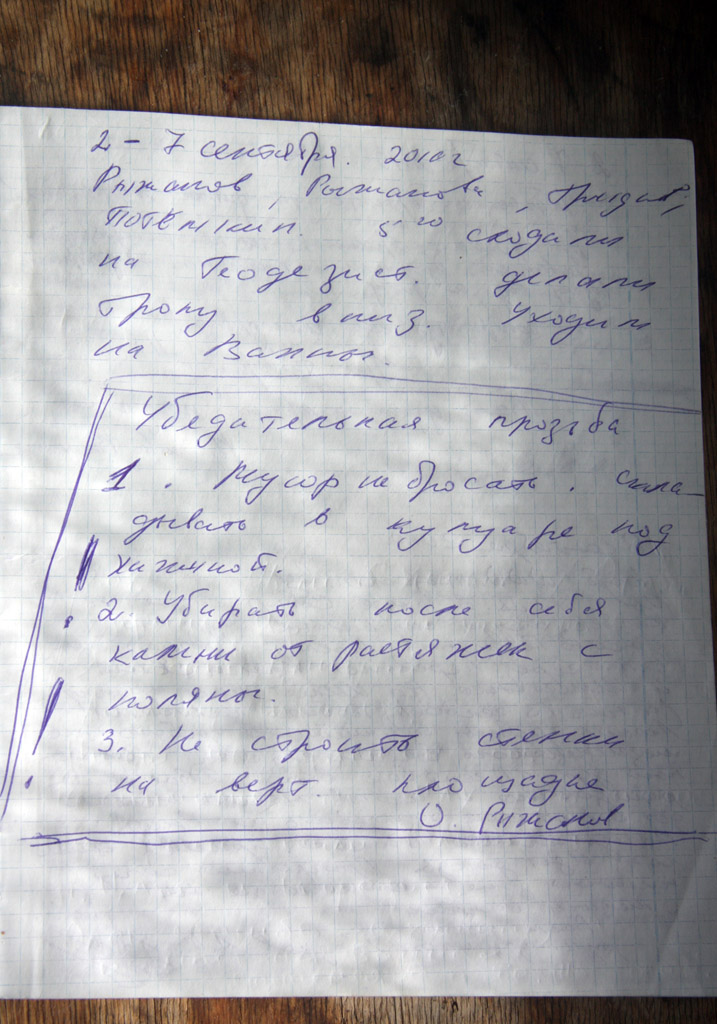 2 – 7 сентября. 2010 г
Рыжанов, Рыжанова,
Потёмкин. 5го сходили
на Геодезист. делали
тропу вниз. Уходим
на
Убедительная прозьба
1. Мусор не бросать. Скла-
дывать в кулуаре под
хижиной.
2. Убирать после себя
камни от растяжек с
поляны.
3. Не строить стенки
на верт. площадке
О. Рыжанов